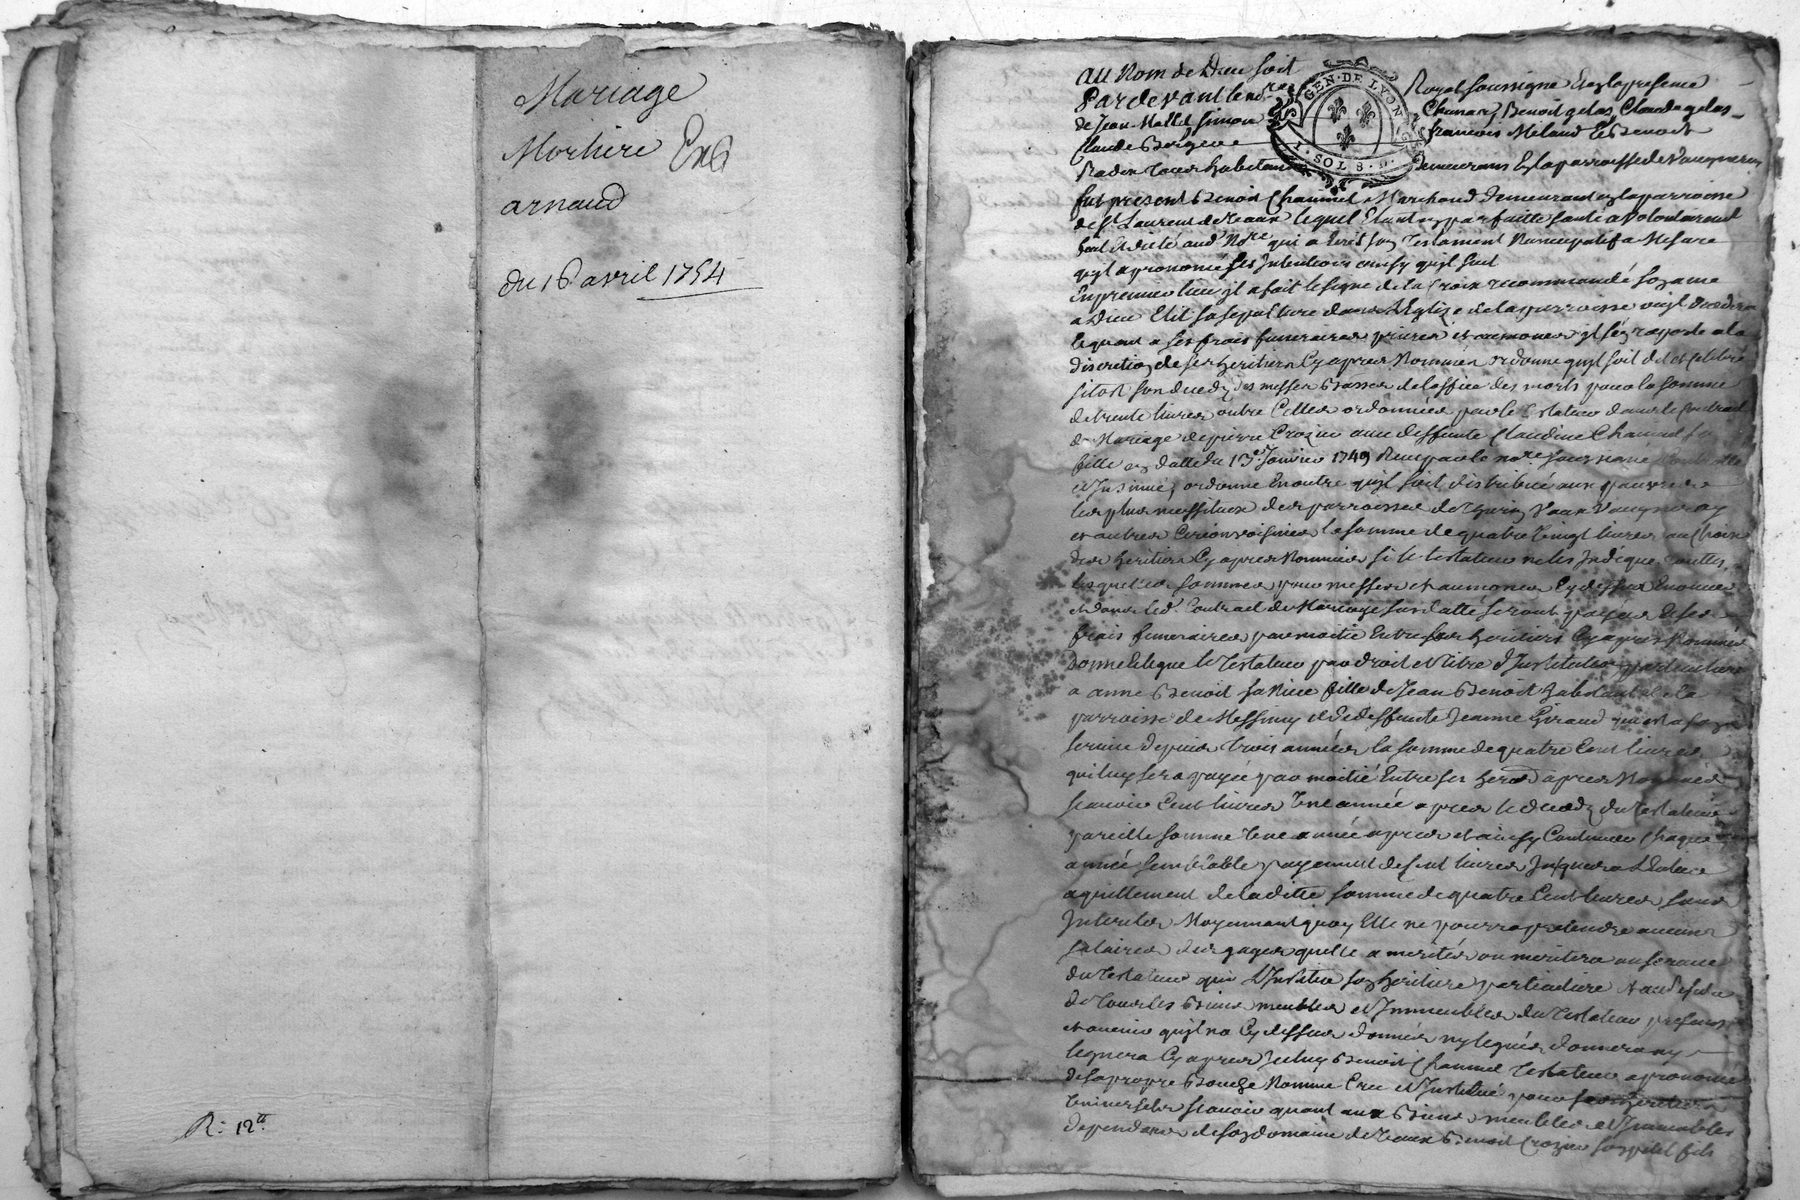 Mariage
Mortiere Et
arnaud
du 16 avril 1754
R: 12
au Nom de Dieu soit
Pardevant le no.re Royal soussigné Et en la presence
de Jean Mallet simon Chanard, Benoit gelas, Claude gelas
Claude Bergere francois Milaud Et Benoist
tous habitans demeurans En la parroisse de Vaugneray
GEN · DE LYON
I · SOL 8 · D
fut present Benoit Chaumel Marchand demeurant en la parroisse
de St Laurent de Vaux lequel Etant en parfaitte santé a volontairement
fait et dicté aud Nore qui a Ecrit son Testament Nuncupatif a Mesure
quil a prononcé ses Intentions ainsy quil suit
En premier lieu il a fait le signe de la Croix recommandé son ame
a Dieu Elit sa sepulture dans L'Eglize de la parroisse ou il decedera
le quant a ses frais funeraires prieres et aumones il s'en raporte a la
discretion de ses heritiers Cy apres Nommés ordonne quil soit dit et celebré
sitost son decedz des messes Basses de l'office des morts pour la somme
de trente livres outre Celles ordonnées par le testateur dans le Contrat
de Mariage de pierre Crozier avec deffunte Claudine Chaumel sa
fille en datte du 13e Janvier 1749 Receu par le nore soussigné
et Insinué, ordonne En outre quil soit distribué aux pauvres
les plus necessiteux des parroisses de Thurin Vaux Vaugneray
et autres Circonvoisines la somme de quatre Vingt livres au Choix
des heritiers Cy apres Nommés si le testateur ne les Indique
lesquelles sommes pour messes et aumones Cy dessus Enoncées
et dans led. Contract de Mariage sus datté seront payées Et les
frais funeraires par moitié Entre ses heritiers Cy apres Nommés
Donne Et legue le Testateur par droit et titre d'Institution particuliere
a anne Benoit sa Niece fille de Jean Benoit habitant de la
parroisse de Messimy et de deffunte Jeanne Giraud qui est a son
service depuis trois années la somme de quatre Cent livres
qui luy sera payée par moitié Entre ses herers apres Nommés
scavoir Cent livres Une année apres le decedz du Testateur
pareille somme Une année apres et ainsy Continuer Chaque
année semblable payement de Cent livres Jusques a L'Entier
aquittement de la ditte somme de quatre Cent livres sans
Interets Moyennant quoy Elle ne pourra pretendre aucuns
salaires des gages quelle a merités ou meritera au service
du Testateur qui L'Institue son heritiere particuliere
de tous les Biens meubles et Immeubles du Testateur presens
et avenir quil n'a Cy dessus donnés ny legués, donnera ny
leguera Cy apres Iceluy Benoit Chaumel Testateur a prononcé
de sa propre Bouche Nommé Cree et Institué pour ses heritiers
Universels scavoir quant aux Biens meubles et Immeubles
dependans de son domaine de Vaux Benoit Crozier son petit fils